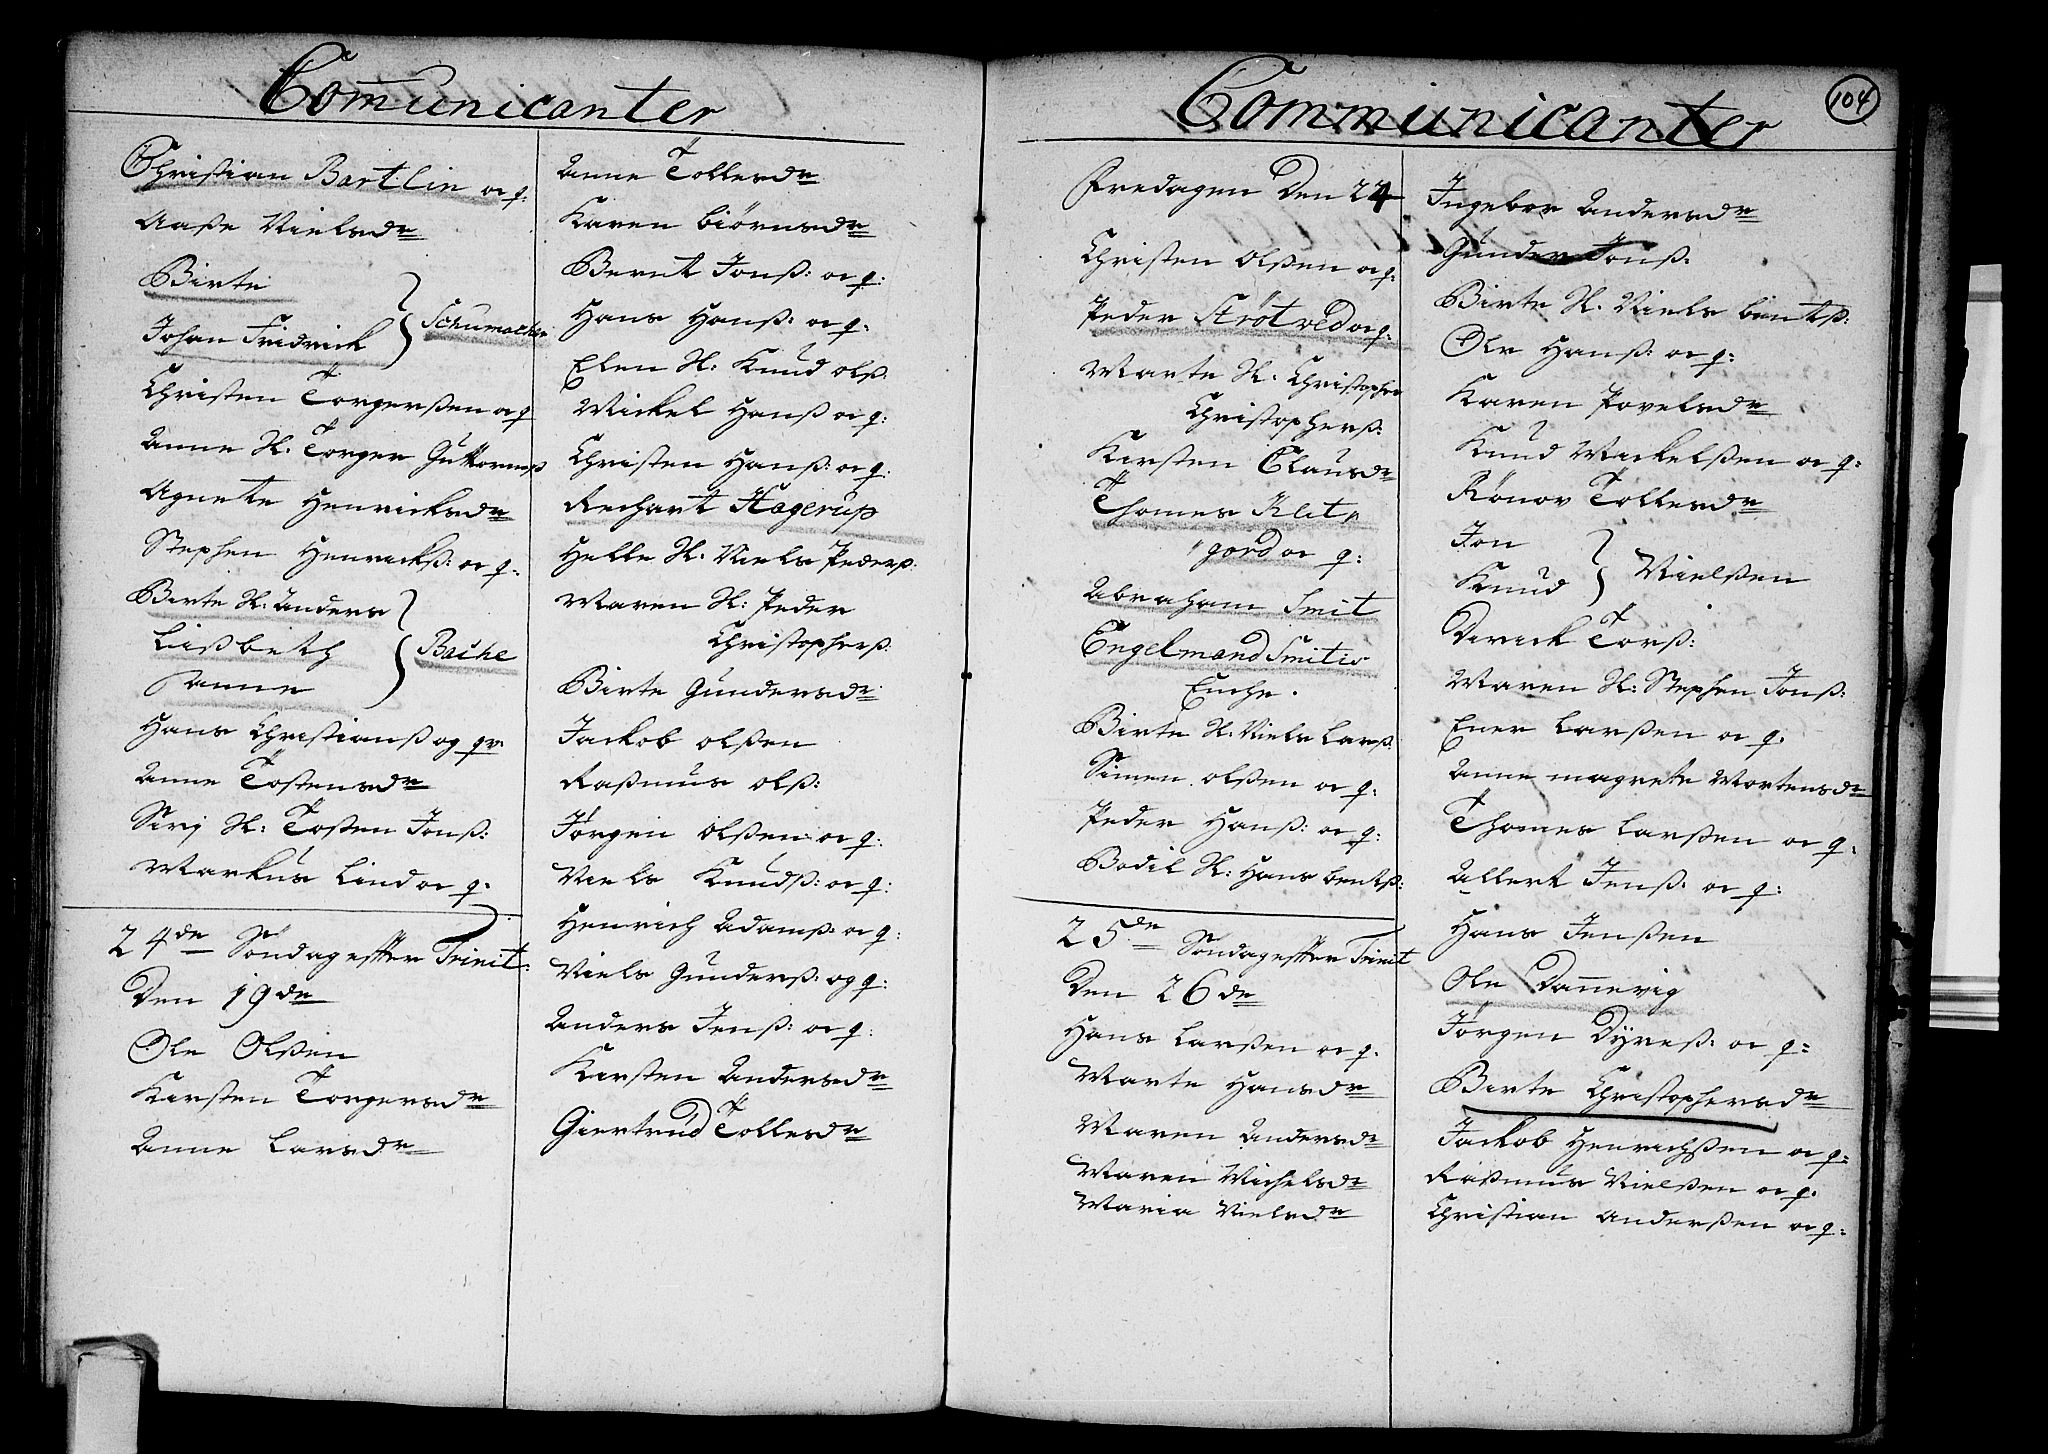 Comunicanter
Christian Bartlin og q:
Aaße Nielsdr
Birte
Johan Fridrick } Schumacher
Christen Torgersßen og q
Anne H. Torger Guttormß
Agnete Henricksdr
Stephen Henrickß: og q:
Birte H. Anders
Lißbeth } Bache
Anne
Hans Christianß og qv:
Anne Tostensdr
Sirj H: Tosten Jonß:
Markus Lind og q.
24de Søndag efter Trinit:
Den 19de
Ole Olßen
Kirsten Torgersdr
Anne Larsdr
Anne Tollesdr
Karen Biörnsdr
Bernt Jonß: og q:
Hans Hanß: og q:
Elen H: Knud Olß.
Mickel Hanß og q:
Christen Hanß: og q.
Rechart Hagerup
Helle H. Niels Pederß:
Maren H: Peder
Christopherß.
Birte Gundersdr
Jackob Olßen
Raßmus Olß:
Jørgen Olßen og q:
Niels Knudß: og q:
Henrich Adamß: og q:
Niels Gunderß: og q:
Anders Jenß: og q:
Kirsten Andersdr
Giertrud Tollesdr
Communicanter
104
Fredagen Den 24
Christen Olßen og q:
Peder Strøtved og q:
Marte H. Christopher
Christopherß:
Kirsten Clausdr
Thomes Klet"
"gord og q:
Abraham Smit
Engelmand Smitis
Enche.
Birte H. Niels Larß.
Simen Olßen og q:
Peder Hanß: og q:
Bodil H: Hans Bentß:
25de Søndag efter Trinit
Den 26de
Hans Larßen og q.
Marte Hansdr
Maren Andersdr
Maren Michelsdr
Maria Nielsdr
Ingebor Andersdr
Gunder Jonß:
Birte H. Niels Bentß:
Ole Hanß: og q:
Karen Povelsdr
Knud Mickelßen og q:
Rönov Tollesdr
Jon
Knud } Nielßen
Dirick Torß:
Maren H: Stephen Jonß:
Ener Larßen og q.
Anne Magrete Mortensdr
Thomes Larßen og q:
Allert Jenß: og q:
Hans Jenßen
Ole Dannevig
Jørgen Dyreß: og q:
Birte Christophersdr
Jackob Henrichßen og q:
Raßmus Nielßen og q.
Christian Anderßen og q: